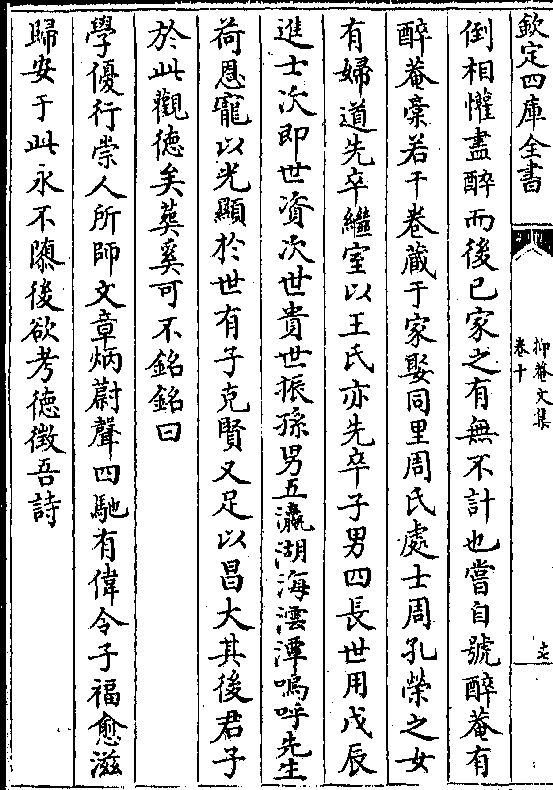 欽定四庫全書
抑菴文集
卷十
倒相懽盡醉而後已家之有無不計也嘗自號醉菴有
醉菴槀若干卷藏于家娶同里周氏處士周孔榮之女
有婦道先卒繼室以王氏亦先卒子男四長世用戊辰
進士次即世資次世貴世振孫男五瀛湖海澐潭嗚呼先生
荷恩寵以光顯於世有子克賢又足以昌大其後君子
於此觀德矣葬奚可不銘銘曰
學優行崇人所師文章炳蔚聲四馳有偉令子福愈滋
歸安于此永不隳後欲考德徵吾詩